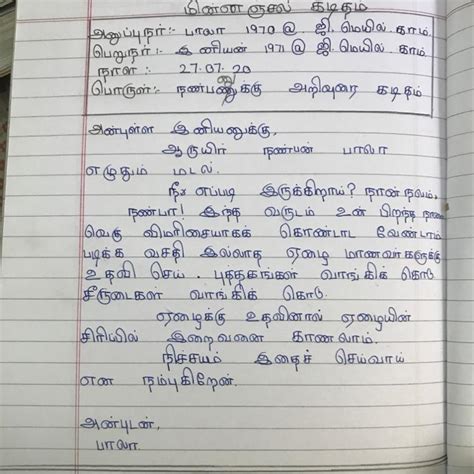 மின்னஞ்சல் கடிதம்
அனுப்புநர்:- பாலா 1970 @ ஜி.மெயில்.காம்.
பெறுநர்:- இனியன் 1971 @ ஜி.மெயில்.காம்
நாள்:- 27.07.20
பொருள்:- நண்பனுக்கு அறிவுரை கடிதம்
அன்புள்ள இனியனுக்கு,
ஆருயிர் நண்பன் பாலா
எழுதும் மடல்.
நீ எப்படி இருக்கிறாய்? நான் நலம்,
நண்பா! இந்த வருடம் உன் பிறந்த நாளை
வெகு விமரிசையாகக் கொண்டாட வேண்டாம்
படிக்க வசதி இல்லாத ஏழை மாணவர்களுக்கு
உதவி செய். புத்தகங்கள் வாங்கிக் கொடு
சீருடைகள் வாங்கிக் கொடு.
ஏழைக்கு உதவினால் ஏழையின்
சிரியில் இறைவனை காணலாம்.
நிச்சயம் இதைச் செய்வாய்
என நம்புகிறேன்.
அன்புடன்,
பாலா.